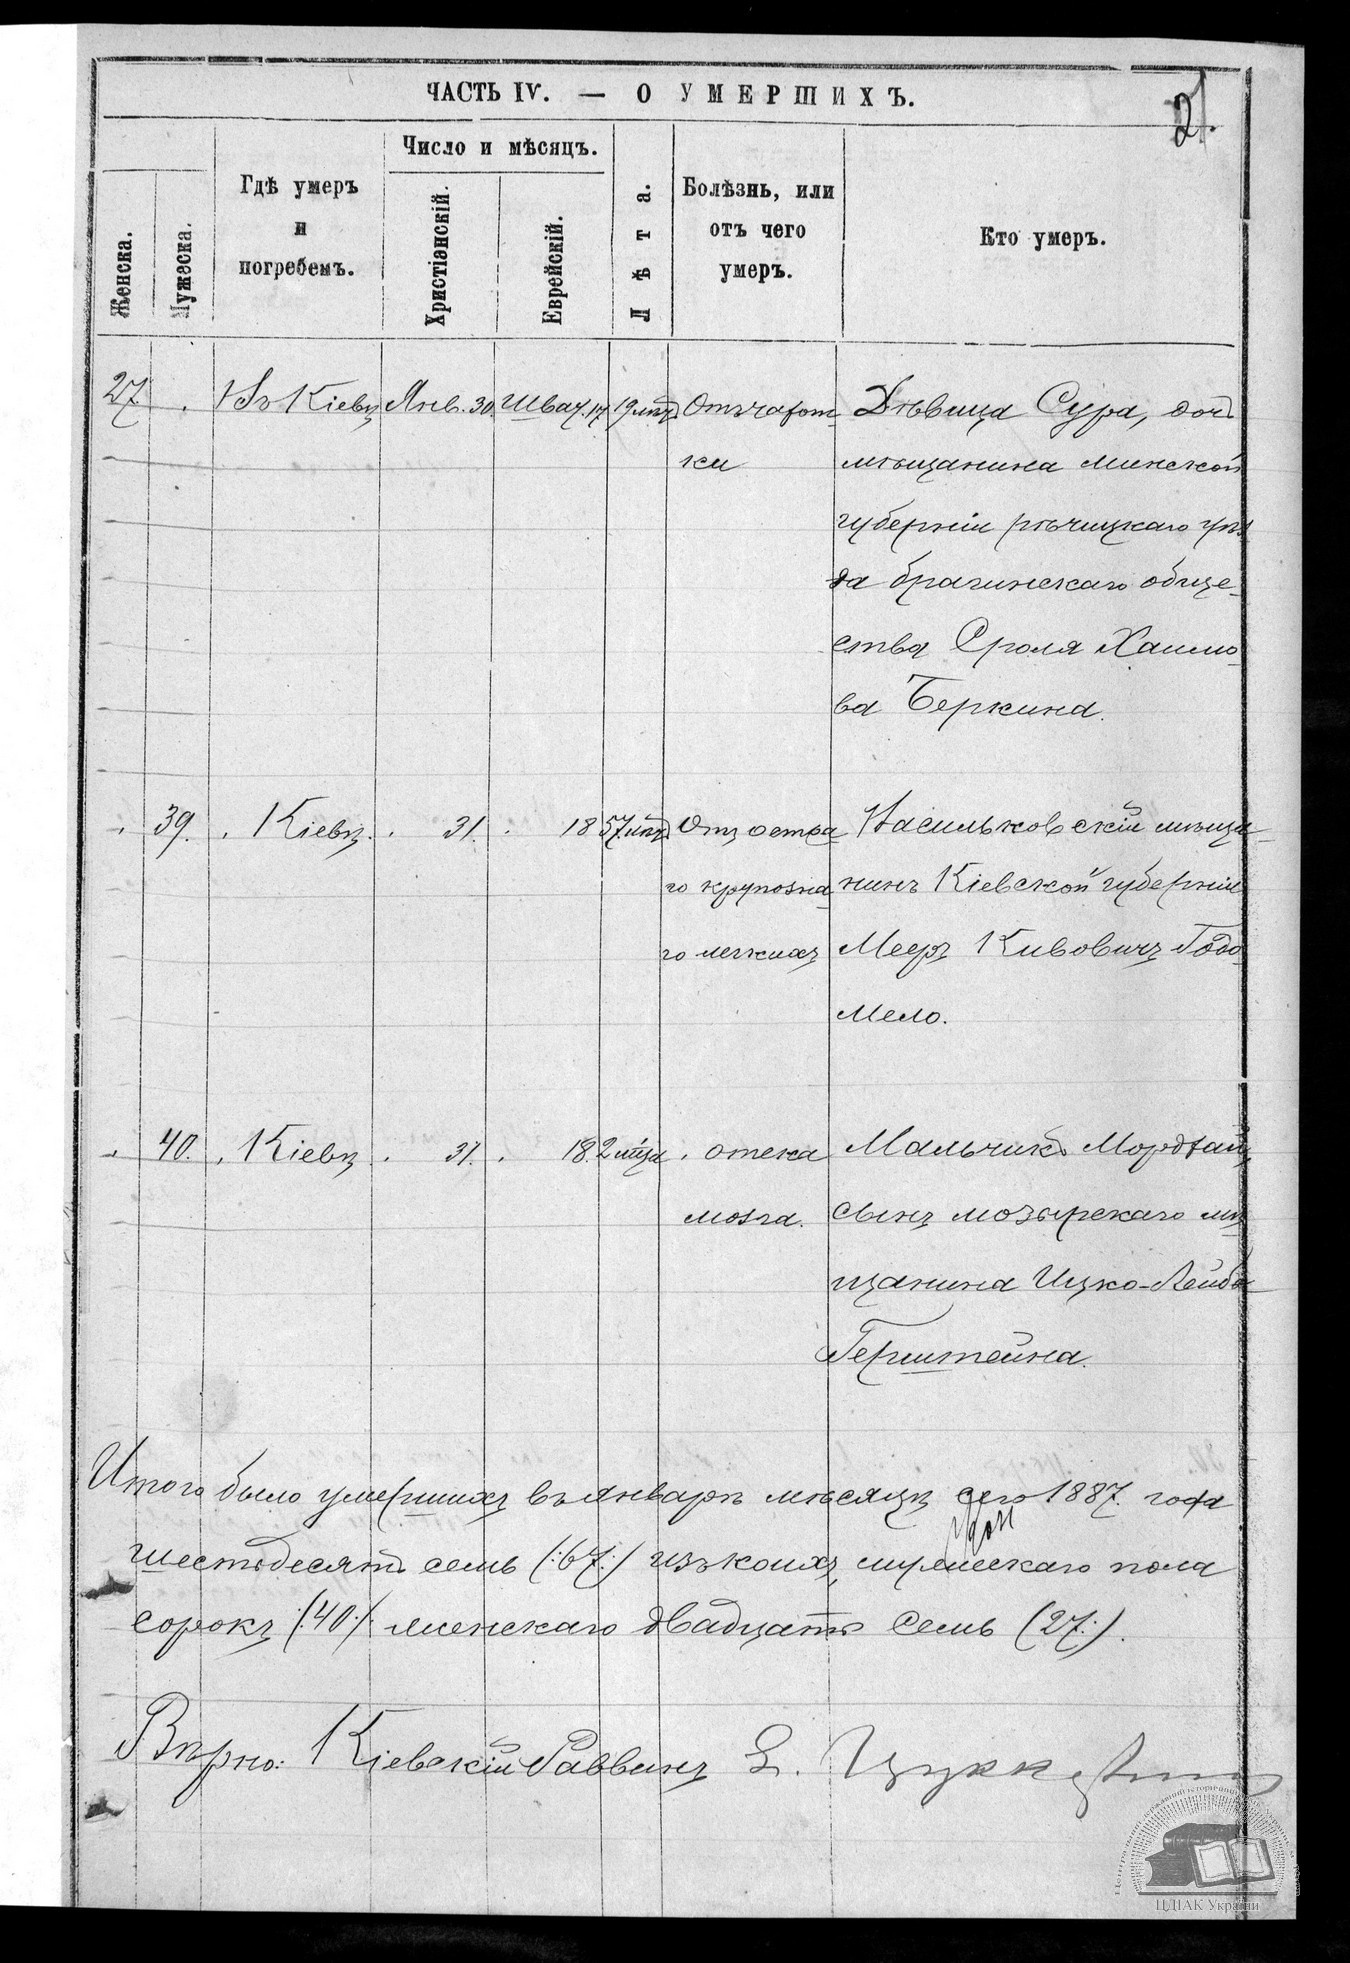 ЧАСТЬ IV. — О УМЕРШИХЪ.
21.
Женска.
Мужеска.
Гдѣ умеръ
и
погребенъ.
Число и мѣсяцъ.
Христіанскій.
Еврейскій.
Лѣта.
Болѣзнь, или
отъ чего
умеръ.
Кто умеръ.
27 . Въ Кіевѣ Янв. 30 Шват. 17 19 лѣтъ Отъ чахот-
ки
Дѣвица Сура, дочь
мѣщанина минской
губерніи рѣчицкаго уѣз
да брагинскаго обще-
ства Сроля Хаимо-
ва Беркина.
. 39. . Кіевѣ. . 31. . 18 57 лѣтъ Отъ остра
го крупозна
го легкихъ
Васильковскій мѣща-
нинъ Кіевской губерніи
Меер Кивович Годо-
мело.
. 40. . Кіевѣ . 31. . 18. 2 мѣца . отека
мозга.
Мальчикъ Мордхай
сынъ мозырскаго мѣ
щанина Ицко-Лейба
Герштейна.
Итого было умершихъ въ январѣ мѣсяцѣ сего 1887. года
шестьдесятъ семь (:67:) изъ коихъ, мужескаго пола
сорокъ (:40:) женскаго двадцать семь (27:).
Вѣрно: Кіевскій Раввинъ Е. Цуккерман
ЦДІАК України